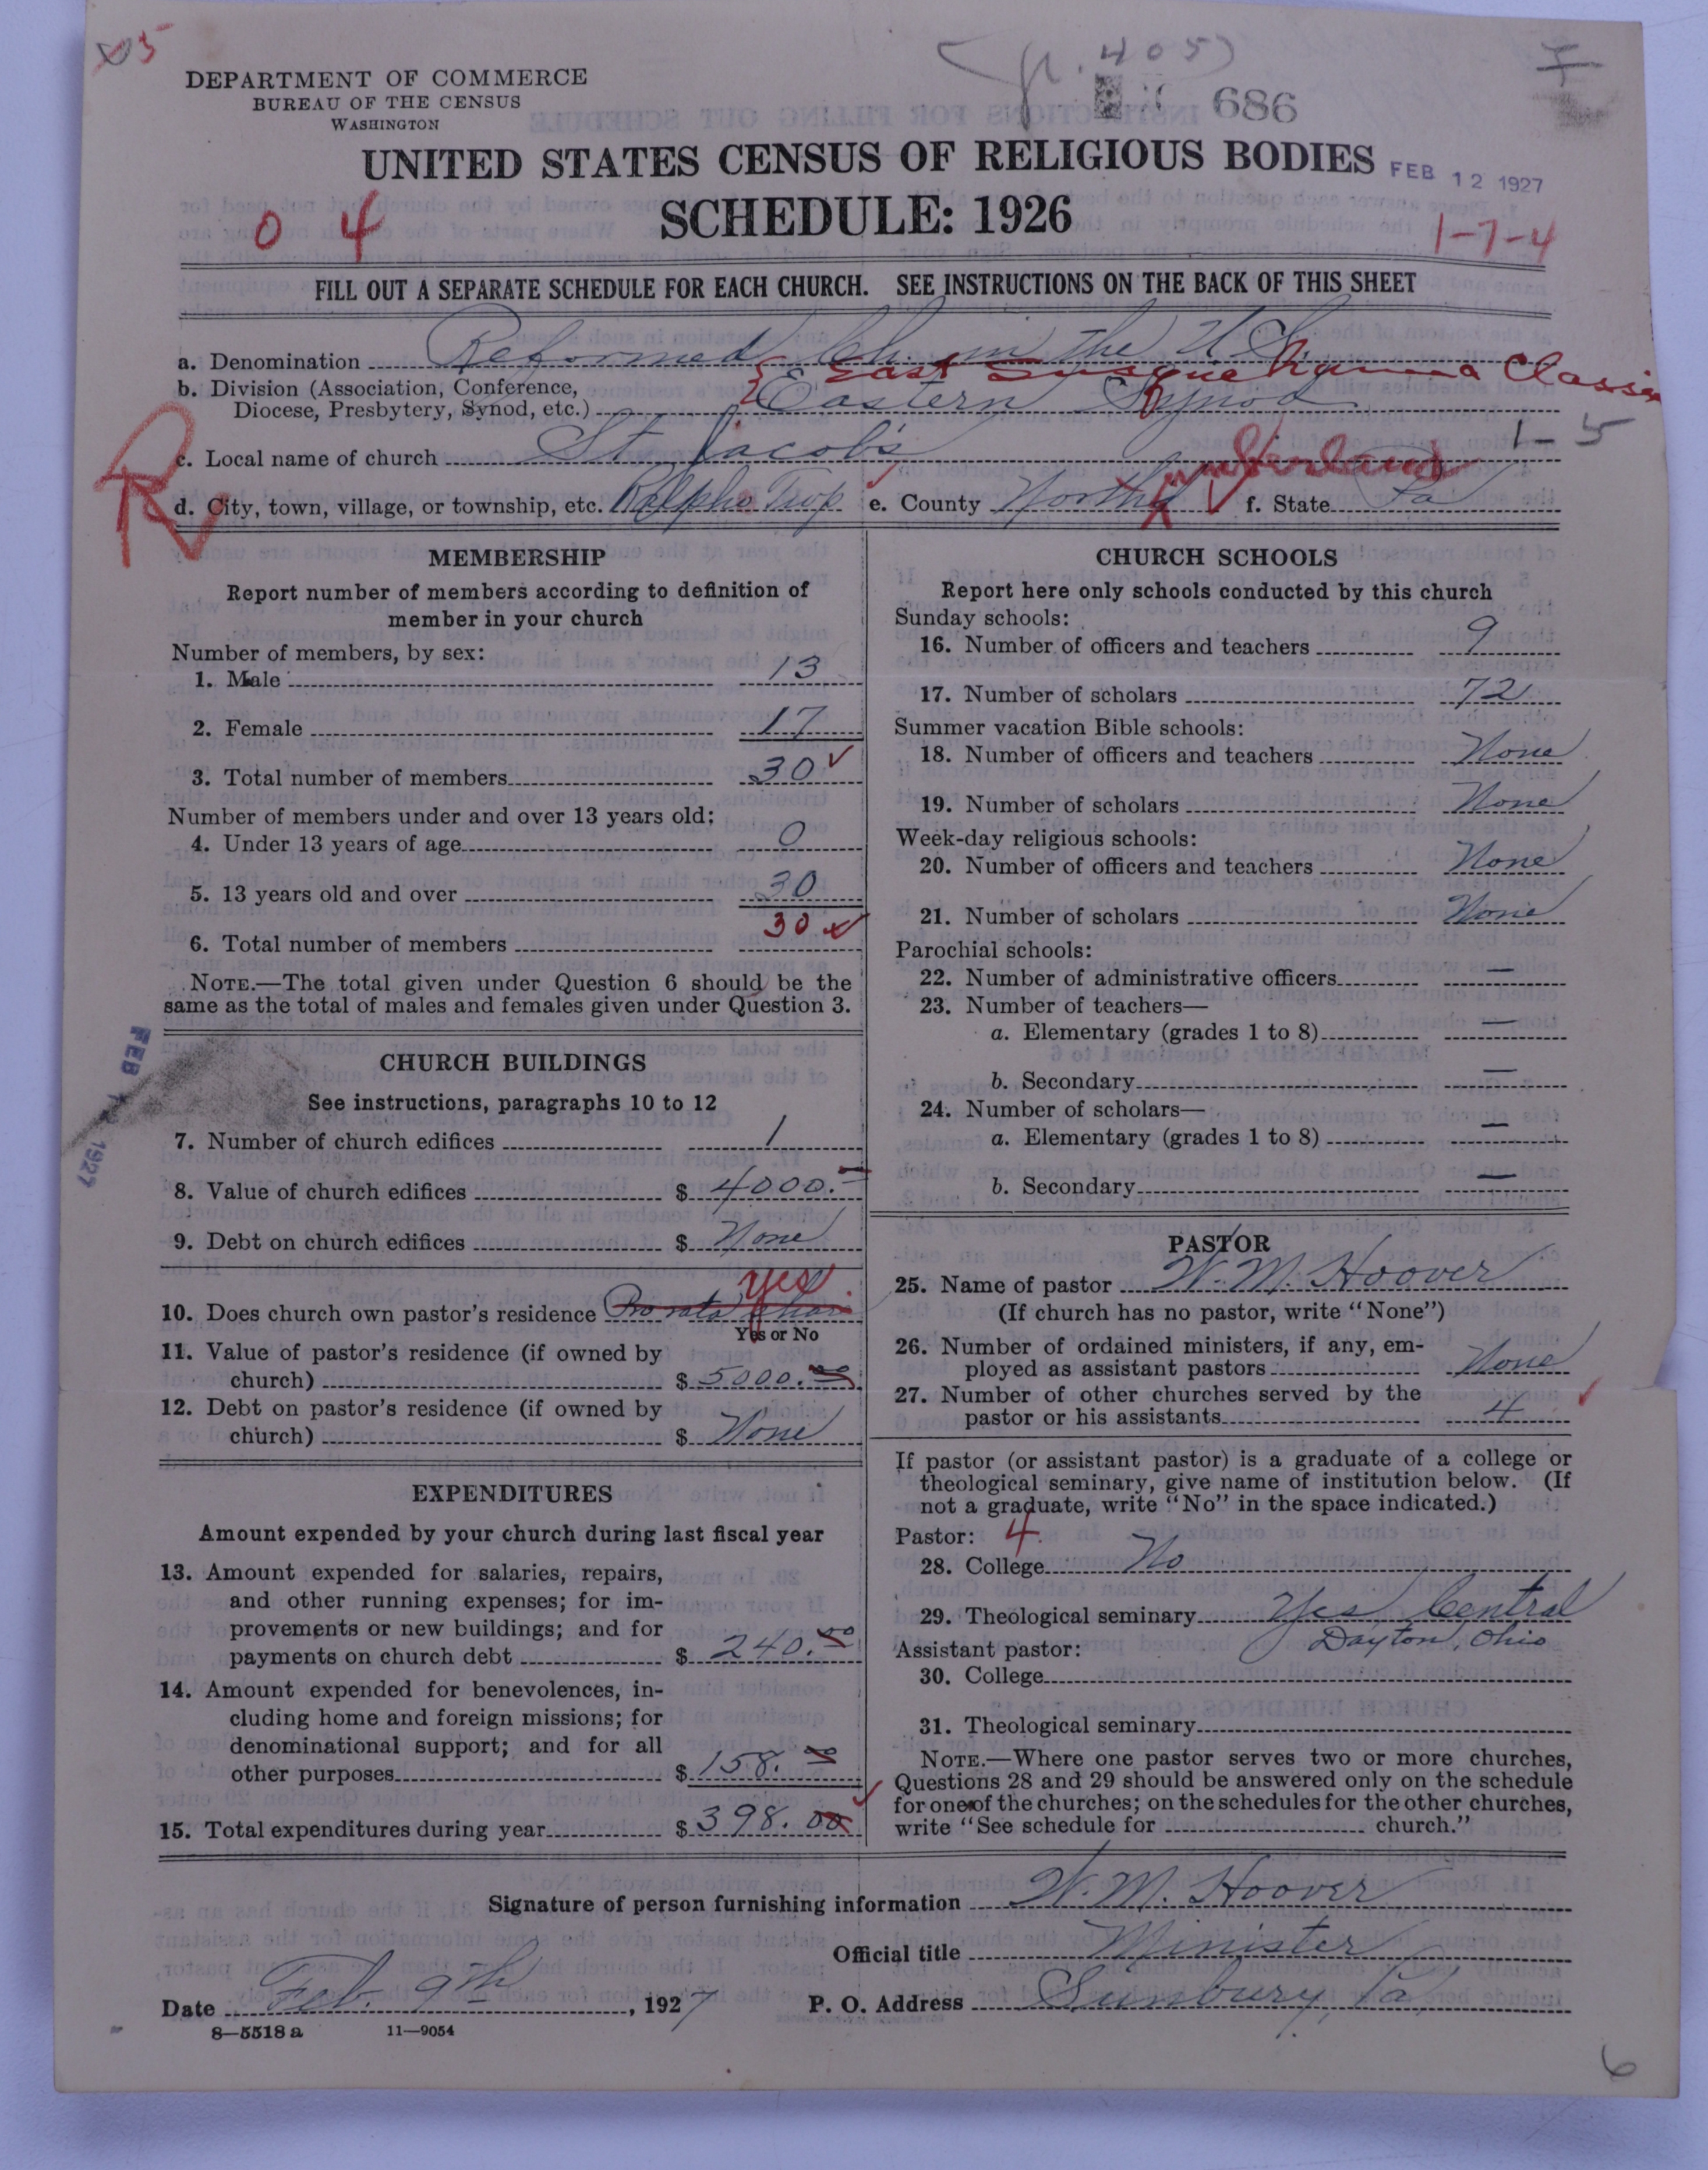 05
DEPARTMENT OF COMMERCE
BUREAU OF THE CENSUS
WASHINGTON
(p. 405)
686
UNITED STATES CENSUS OF RELIGIOUS BODIES
FEB 12 1927
SCHEDULE: 1926
0 4
1-7-4
FILL OUT A SEPARATE SCHEDULE FOR EACH CHURCH. SEE INSTRUCTIONS ON THE BACK OF THIS SHEET
a. Denomination Reformed Ch. in the U.S.
East Susquehanna Classis
b. Division (Association, Conference,
Diocese, Presbytery, Synod, etc.) Eastern Synod
1-5
R
c. Local name of church St Jacob's
d. City, town, village, or township, etc. Ralpho Twp e. County North'd umberland f. State Pa
MEMBERSHIP
Report number of members according to definition of
member in your church
Number of members, by sex:
1. Male 13
2. Female 17
3. Total number of members 30
Number of members under and over 13 years old:
4. Under 13 years of age 0
5. 13 years old and over 30
6. Total number of members 30
NOTE.—The total given under Question 6 should be the
same as the total of males and females given under Question 3.
FEB 12 1927
CHURCH BUILDINGS
See instructions, paragraphs 10 to 12
7. Number of church edifices 1
8. Value of church edifices $ 4000.
9. Debt on church edifices $ None
yes
10. Does church own pastor's residence Pro rata share
Yes or No
11. Value of pastor's residence (if owned by
church) $ 5000.00
12. Debt on pastor's residence (if owned by
church) $ None
EXPENDITURES
Amount expended by your church during last fiscal year
13. Amount expended for salaries, repairs,
and other running expenses; for im-
provements or new buildings; and for
payments on church debt $ 240.00
14. Amount expended for benevolences, in-
cluding home and foreign missions; for
denominational support; and for all
other purposes $ 158.00
15. Total expenditures during year $ 398.00
CHURCH SCHOOLS
Report here only schools conducted by this church
Sunday schools:
16. Number of officers and teachers 9
17. Number of scholars 72
Summer vacation Bible schools:
18. Number of officers and teachers None
19. Number of scholars None
Week-day religious schools:
20. Number of officers and teachers None
21. Number of scholars None
Parochial schools:
22. Number of administrative officers —
23. Number of teachers—
a. Elementary (grades 1 to 8) —
b. Secondary —
24. Number of scholars—
a. Elementary (grades 1 to 8) —
b. Secondary —
PASTOR
25. Name of pastor W. M. Hoover
(If church has no pastor, write "None")
26. Number of ordained ministers, if any, em-
ployed as assistant pastors None
27. Number of other churches served by the
pastor or his assistants 4
If pastor (or assistant pastor) is a graduate of a college or
theological seminary, give name of institution below. (If
not a graduate, write "No" in the space indicated.)
Pastor: 4
28. College No
29. Theological seminary Yes Central
Dayton, Ohio
Assistant pastor:
30. College
31. Theological seminary
NOTE.—Where one pastor serves two or more churches,
Questions 28 and 29 should be answered only on the schedule
for one of the churches; on the schedules for the other churches,
write "See schedule for church."
Signature of person furnishing information W. M. Hoover
Official title Minister
Date Feb. 9th, 1927 P. O. Address Sunbury, Pa.
8—5518 a 11—9054
6